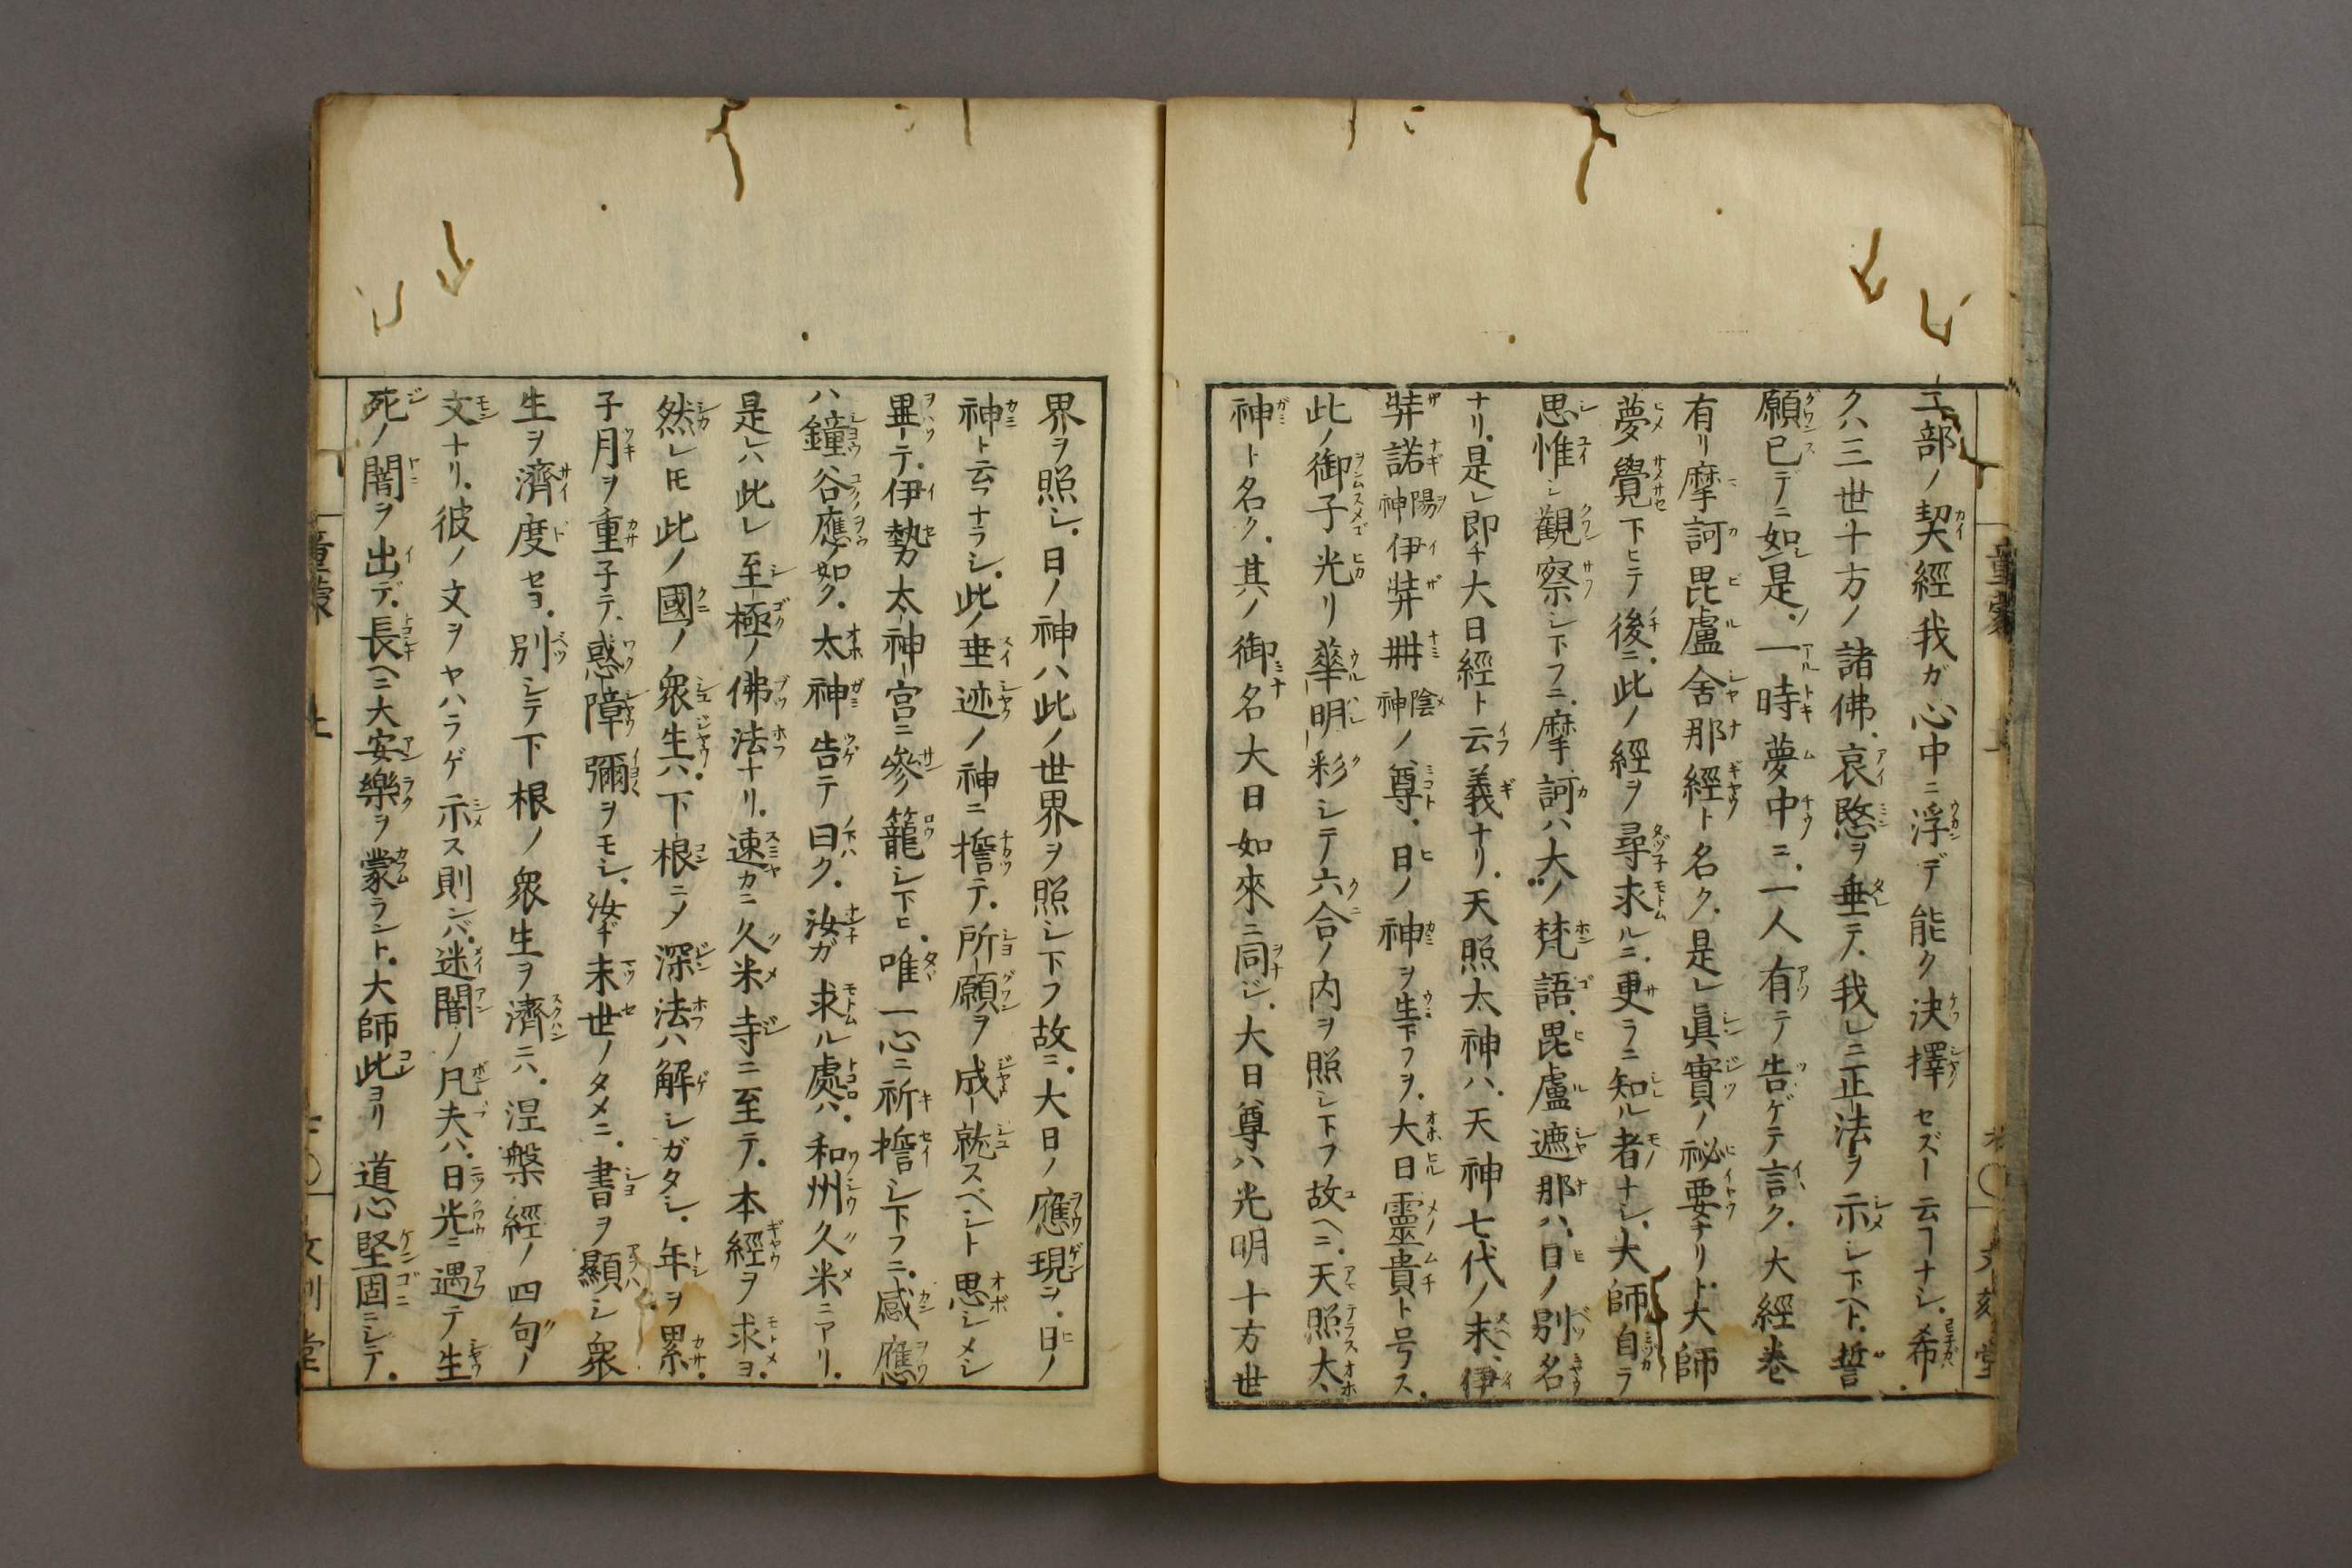 工部ノ契經我ガ心中ニ浮デ能ク決擇セズト云フナシ希
クハ三世十方ノ諸佛哀愍ヲ垂テ我レニ正法ヲ示シ下ヘト誓
願已デニ如レ是ノ一時夢中ニ一人有テ告ゲテ言ク大經巻
有リ摩訶毘盧舍那經ト名ク是レ眞實ノ祕要ナリト大師
夢覺下ヒテ後ニ此ノ經ヲ尋求ルニ更ラニ知ル者ナシ大師自ラ
思惟シ觀察シ下フニ摩訶ハ大ノ梵語毘盧遮那ハ日ノ別名
ナリ是レ即チ大日經ト云義ナリ天照太神ハ天神七代ノ末伊
弉諾陽神伊弉冊陰神ノ尊日ノ神ヲ生下フヲ大日靈貴ト号ス
此ノ御子光リ華明彩シテ六合ノ内ヲ照シ下フ故ヘニ天照太
神ト名ク其ノ御名大日如來ニ同ジ大日尊ハ光明十方世
界ヲ照シ日ノ神ハ此ノ世界ヲ照シ下フ故ニ大日ノ應現ヲ日ノ
神ト云フナラシ此ノ垂迹ノ神ニ擔テ所願ヲ成就スベシト思シメシ
畢テ伊勢太神宮ニ參籠シ下ヒ唯一心ニ祈擔シ下フニ感應
ハ鐘谷應ノ如ク太神告テ曰ク汝ガ求ル處ハ和州久米ニアリ
是レハ此レ至極ノ佛法ナリ速カニ久米寺ニ至テ本經ヲ求ヨ
然レ𪜈此ノ國ノ衆生ハ下根ニノ深法ハ解シガタシ年ヲ累
子月ヲ重子テ惑障彌ヲモシ汝ヂ末世ノタメニ書ヲ顯シ衆
生ヲ濟度セヨ別シテ下根ノ衆生ヲ濟ニハ涅槃經ノ四句ノ
文ナリ彼ノ文ヲヤハラゲ示ス則ンバ迷闇ノ凡夫ハ日光ニ遇テ生
死ノ闇ヲ出デ長ヘニ大安樂ヲ蒙ラント大師此ヨリ道心堅固ニシテ